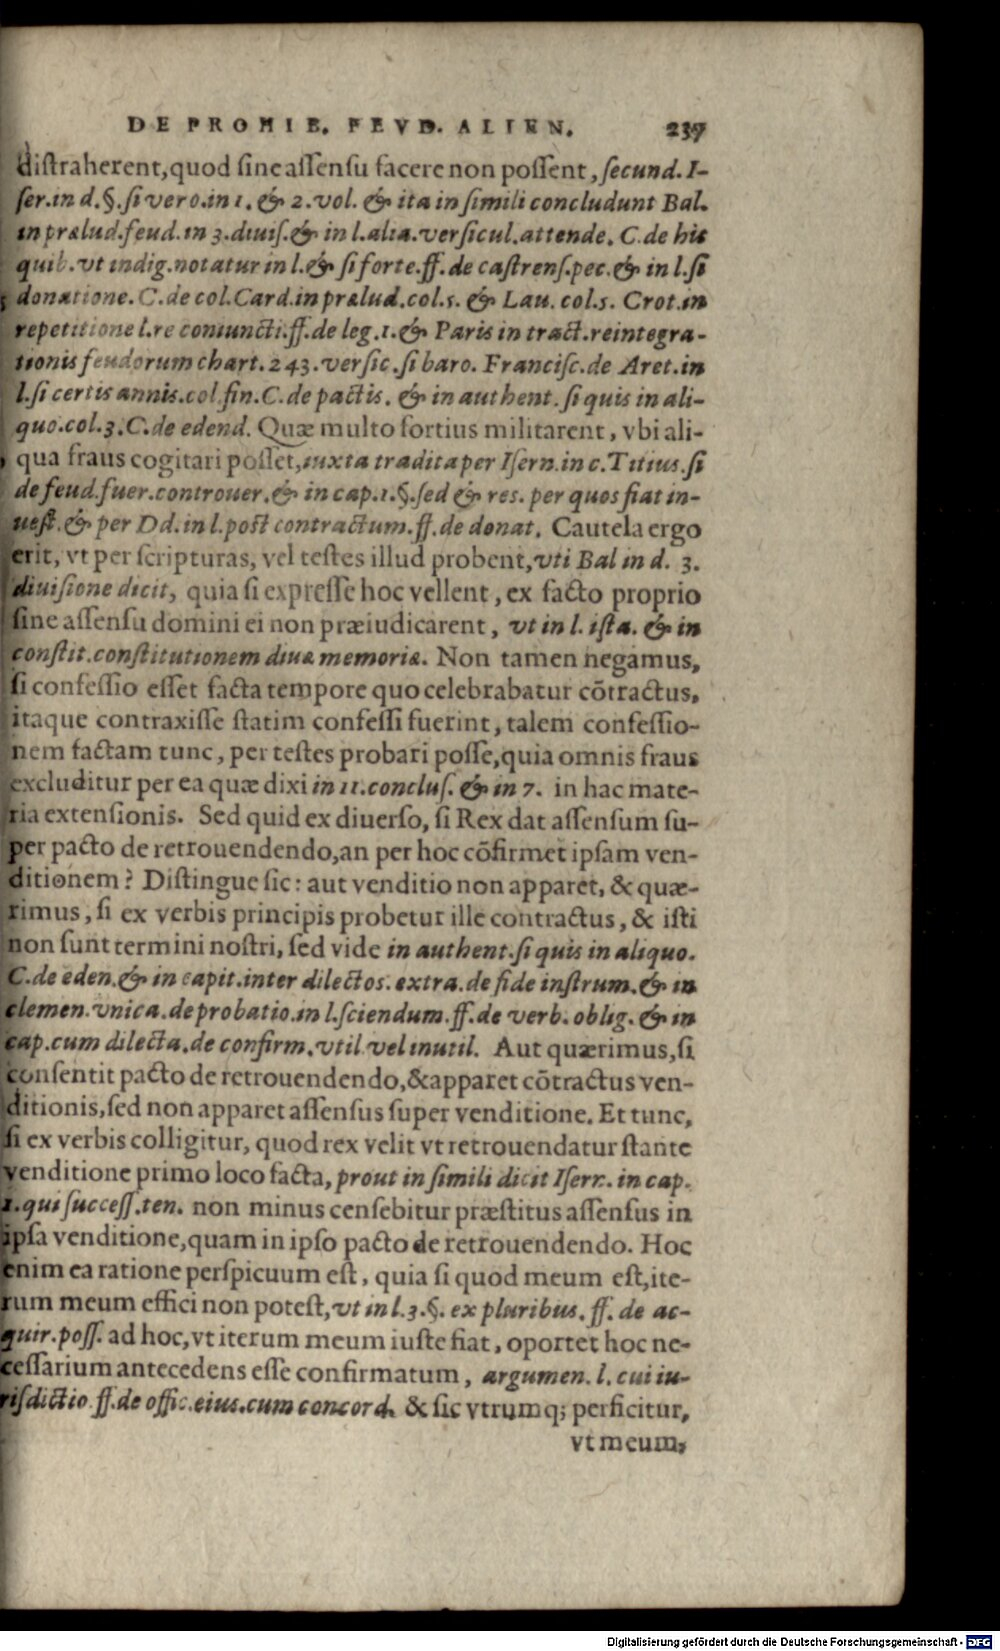 DE PROHIB. FEVD. ALIEN. 237
distraherent, quod sine assensu facere non possent, secund. I-
ser. in d. §. si vero. in 1. & 2. vol. & ita in simili concludunt Bal.
in prælud. feud. in 3. diuis. & in l. alia. versicul. attende. C. de his
quib. vt indig. notatur in l. & si forte. ff. de castrens. pec. & in l. si
donatione. C. de col. Card. in prælud. col. 5. & Lau. col. 5. Crot. in
repetitione l. re coniuncti. ff. de leg. 1. & Paris in tract. reintegra-
tionis feudorum chart. 243. versic. si baro. Francisc. de Aret. in
l. si certis annis. col. fin. C. de pactis. & in authent. si quis in ali-
quo. col. 3. C. de edend. Quæ multo fortius militarent, vbi ali-
qua fraus cogitari posset, iuxta tradita per Isern. in c. Titius. si
de feud. fuer. controuer. & in cap. 1. §. sed & res. per quos fiat in-
uest. & per Dd. in l. post contractum. ff. de donat. Cautela ergo
erit, vt per scripturas, vel testes illud probent, vti Bal in d. 3.
diuisione dicit, quia si expresse hoc vellent, ex facto proprio
sine assensu domini ei non præiudicarent, vt in l. ista. & in
constit. constitutionem diuæ memoriæ. Non tamen negamus,
si confessio esset facta tempore quo celebrabatur cōtractus,
itaque contraxisse statim confessi fuerint, talem confessio-
nem factam tunc, per testes probari posse, quia omnis fraus
excluditur per ea quæ dixi in 11. conclus. & in 7. in hac mate-
ria extensionis. Sed quid ex diuerso, si Rex dat assensum su-
per pacto de retrouendendo, an per hoc cōfirmet ipsam ven-
ditionem? Distingue sic: aut venditio non apparet, & quæ-
rimus, si ex verbis principis probetur ille contractus, & isti
non sunt termini nostri, sed vide in authent. si quis in aliquo.
C. de eden. & in capit. inter dilectos. extra. de fide instrum. & in
clemen. vnica. de probatio. in l. sciendum. ff. de verb. oblig. & in
cap. cum dilecta. de confirm. vtil. vel inutil. Aut quærimus, si
consentit pacto de retrouendendo, & apparet cōtractus ven-
ditionis, sed non apparet assensus super venditione. Et tunc,
si ex verbis colligitur, quod rex velit vt retrouendatur stante
venditione primo loco facta, prout in simili dicit Isern. in cap.
1. qui success. ten. non minus censebitur præstitus assensus in
ipsa venditione, quam in ipso pacto de retrouendendo. Hoc
enim ea ratione perspicuum est, quia si quod meum est, ite-
rum meum effici non potest, vt in l. 3. §. ex pluribus. ff. de ac-
quir. poss. ad hoc, vt iterum meum iuste fiat, oportet hoc ne-
cessarium antecedens esse confirmatum, argumen. l. cui iu-
risdictio ff. de offic. eius. cum concord. & sic vtrumq; perficitur,
vt meum,
Digitalisierung gefördert durch die Deutsche Forschungsgemeinschaft - DFG